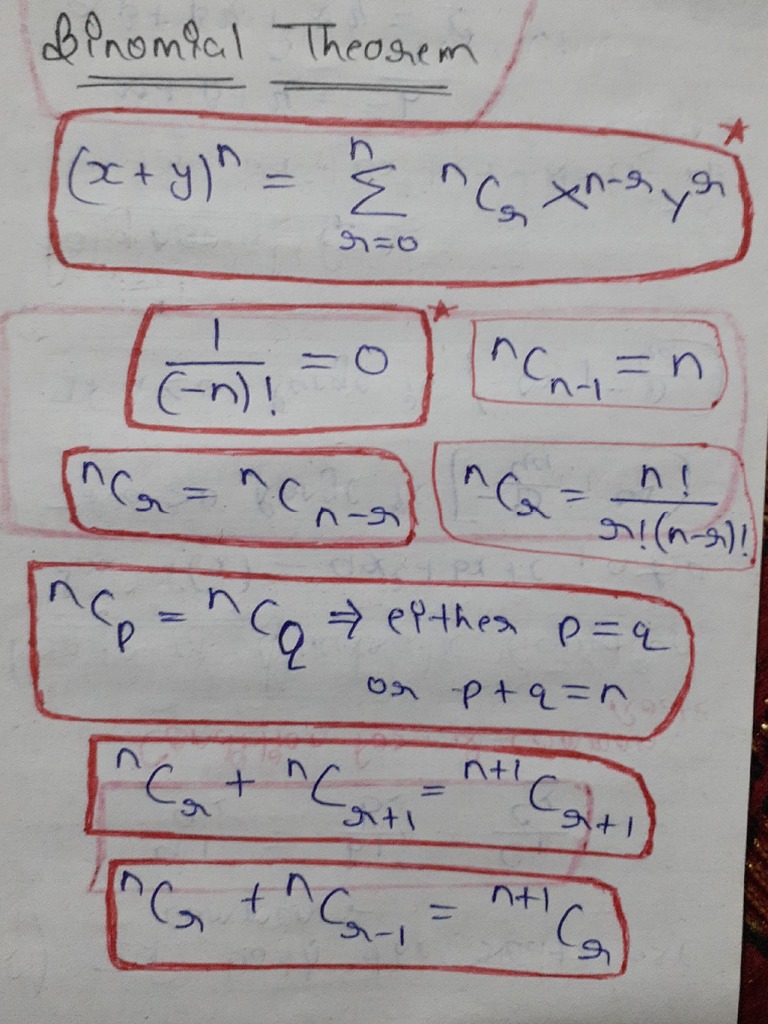 Binomial Theorem
(x+y)ⁿ = ∑ⁿᵣ₌₀ ⁿCᵣ xⁿ⁻ʳ yʳ
1/(-n)! = 0
ⁿCₙ₋₁ = n
ⁿCᵣ = ⁿCₙ₋ᵣ
ⁿCᵣ = n!/r!(n-r)!
ⁿCp = ⁿCq ⇒ either p=q
or p+q=n
ⁿCᵣ + ⁿCᵣ₊₁ = ⁿ⁺¹Cᵣ₊₁
ⁿCᵣ + ⁿCᵣ₋₁ = ⁿ⁺¹Cᵣ